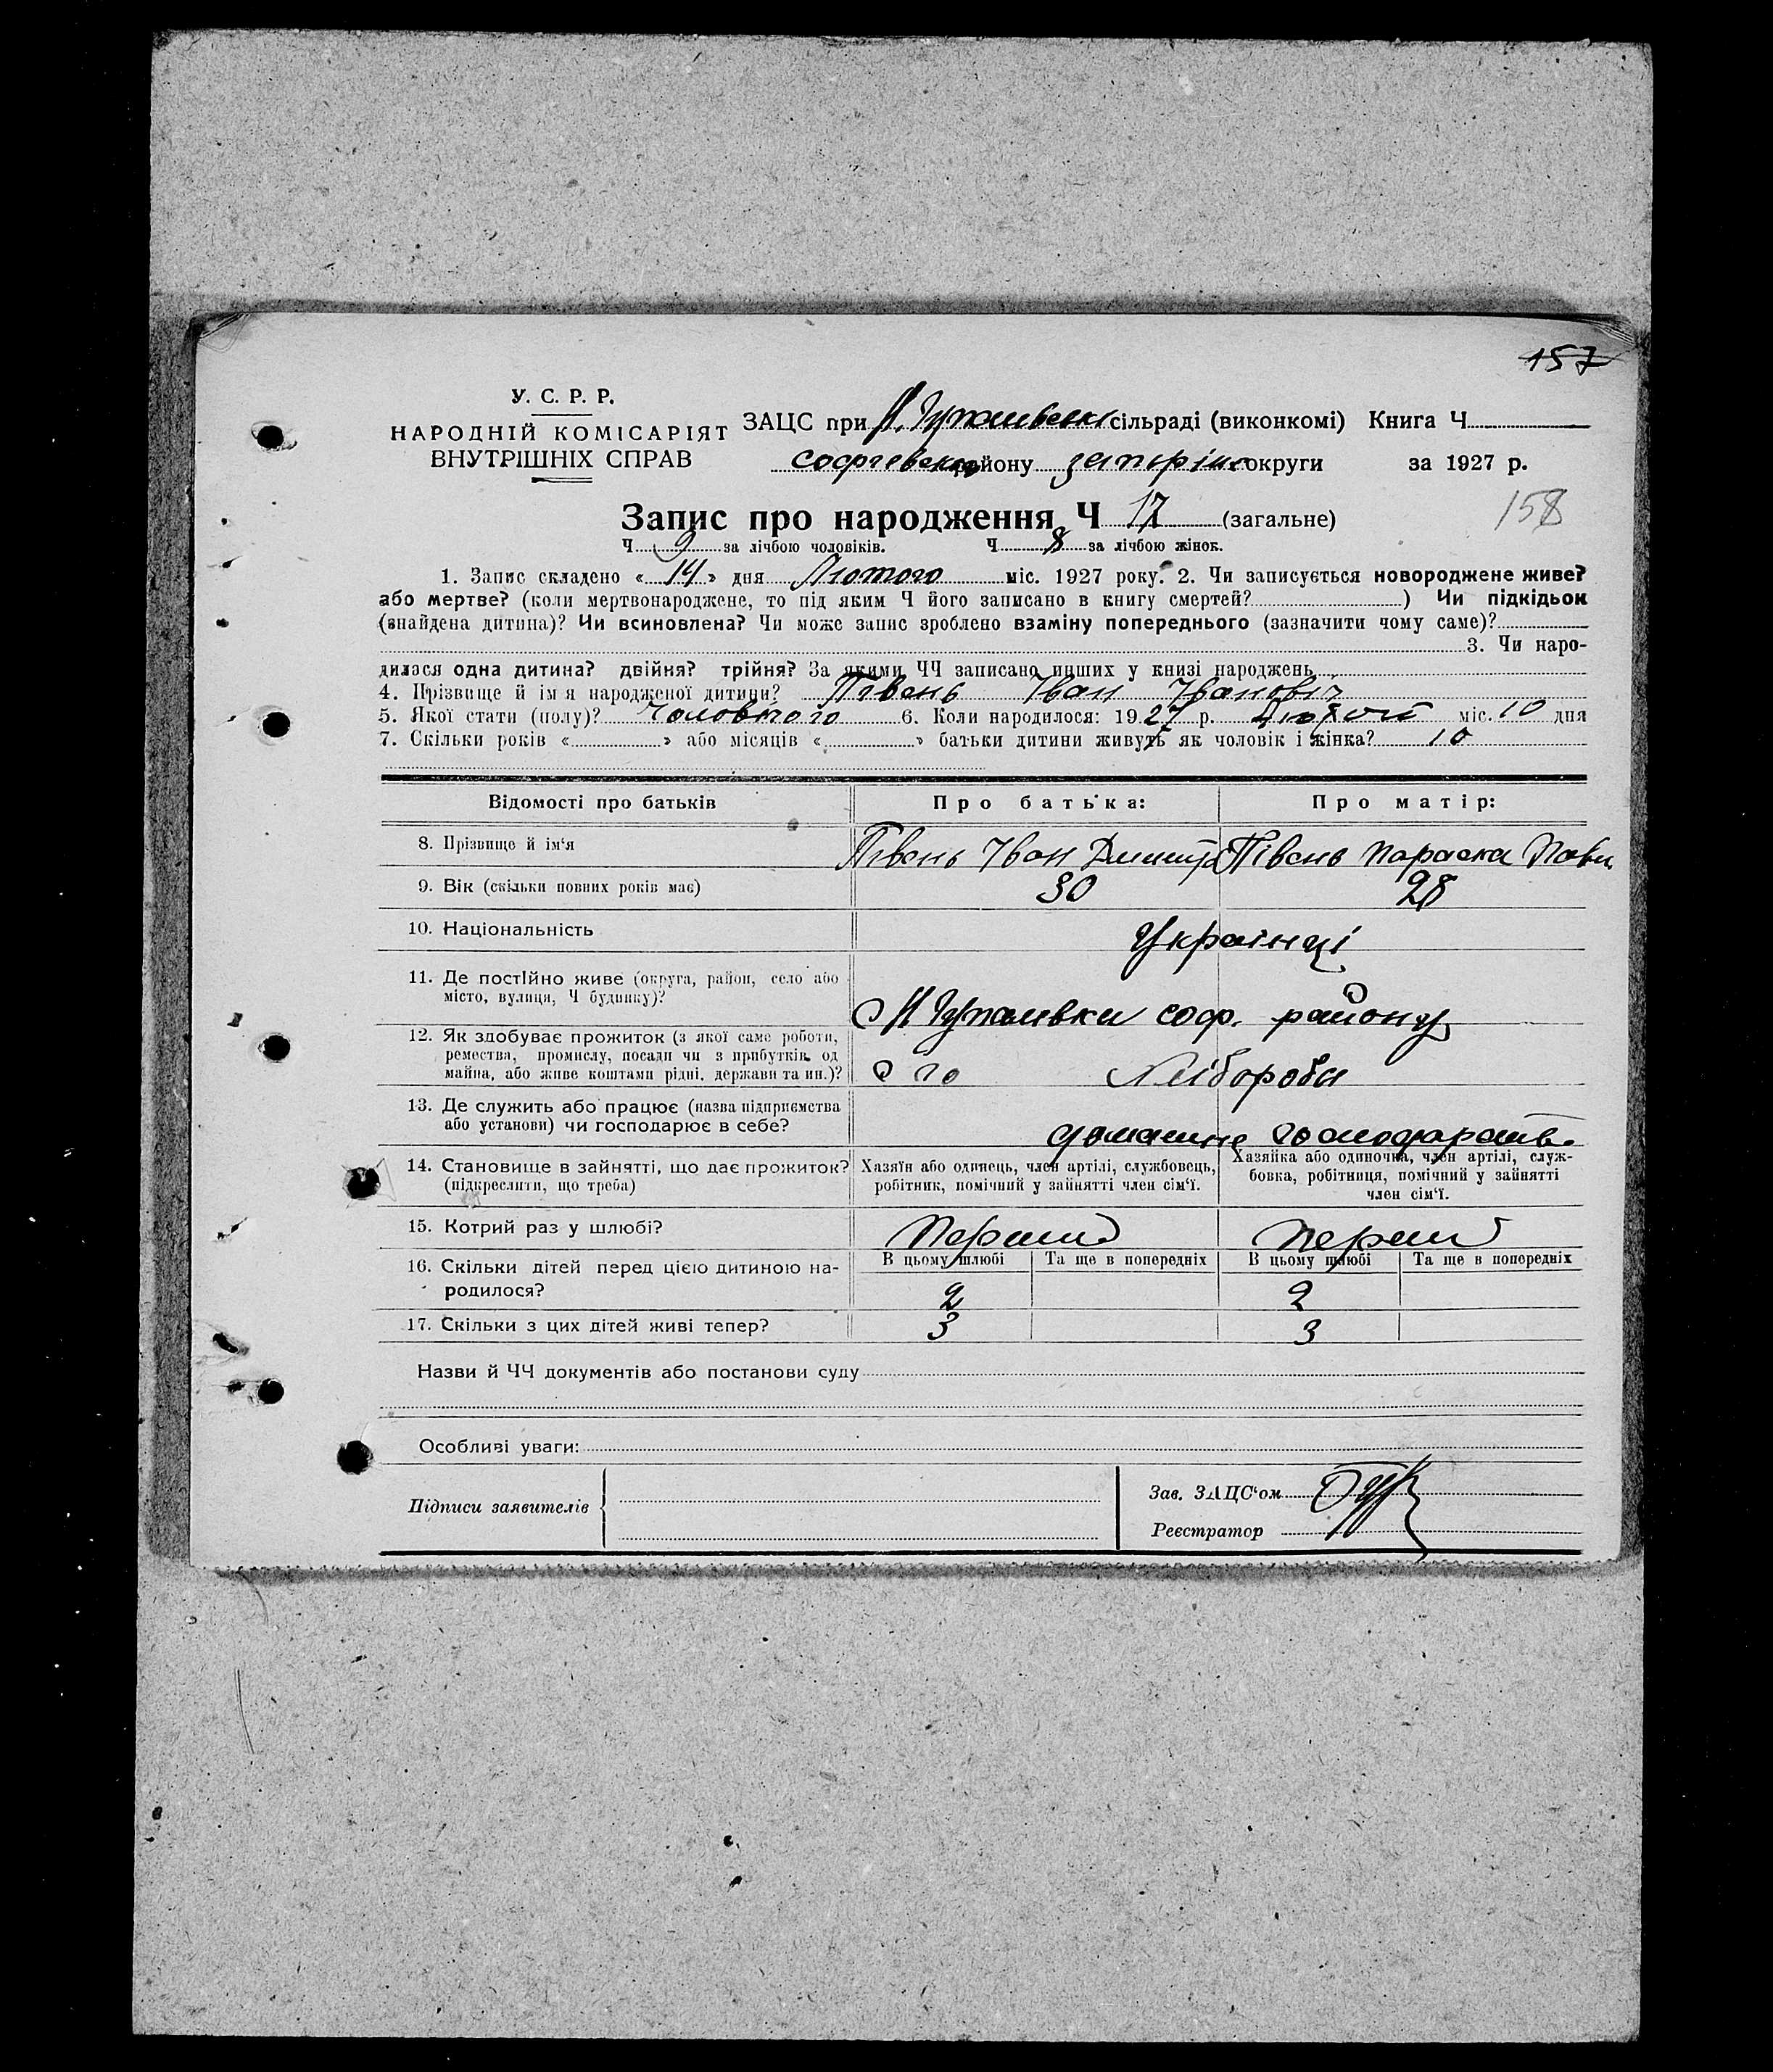 157
У. С. Р. Р.
НАРОДНІЙ КОМІСАРІЯТ
ВНУТРІШНІХ СПРАВ
ЗАЦС при сільраді (виконкомі) Книга Ч
району округи за 1927 р.
Запис про народження Ч 17 (загальне)
158
Ч 9 за лічбою чоловіків. Ч 8 за лічбою жінок.
1. Запис складено « 14 » дня Лютого міс. 1927 року. 2. Чи записується новороджене живе?
або мертве? (коли мертвонароджене, то під яким Ч його записано в книгу смертей? ) Чи підкідьок
(знайдена дитина)? Чи всиновлена? Чи може запис зроблено взаміну попереднього (зазначити чому саме)?
3. Чи наро-
дилася одна дитина? двійня? трійня? За якими ЧЧ записано инших у книзі народжень
4. Прізвище й ім'я народженої дитини? Півень Іван Іванович
5. Якої стати (полу)? Чоловічого 6. Коли народилося: 1927 р. міс. 10 дня
7. Скільки років « » або місяців « » батьки дитини живуть як чоловік і жінка? 10
Відомості про батьків Про батька: Про матір:
8. Прізвище й ім'я Півень Іван Дмитр Півень Параска Павл
9. Вік (скільки повних років має) 30 28
10. Національність Українці
11. Де постійно живе (округа, район, село або
місто, вулиця, Ч будинку)?
соф. району
12. Як здобуває прожиток (з якої саме роботи,
ремества, промислу, посади чи з прибутків од
майна, або живе коштами рідні, держави та ин.)? Хлібороби
13. Де служить або працює (назва підприємства
або установи) чи господарює в себе?
14. Становище в зайнятті, що дає прожиток?
(підкреслити, що треба)
Хазяїн або одинець, член артілі, службовець,
робітник, помічний у зайнятті член сім'ї.
Хазяйка або одиночка, член артілі, служ-
бовка, робітниця, помічний у зайнятті
член сім'ї.
15. Котрий раз у шлюбі? Перший Перший
16. Скільки дітей перед цією дитиною на-
родилося?
В цьому шлюбі Та ще в попередніх В цьому шлюбі Та ще в попередніх
2 2
17. Скільки з цих дітей живі тепер? 3 3
Назви й ЧЧ документів або постанови суду
Особливі уваги:
Підписи заявителів
Зав. ЗАЦС'ом
Реєстратор